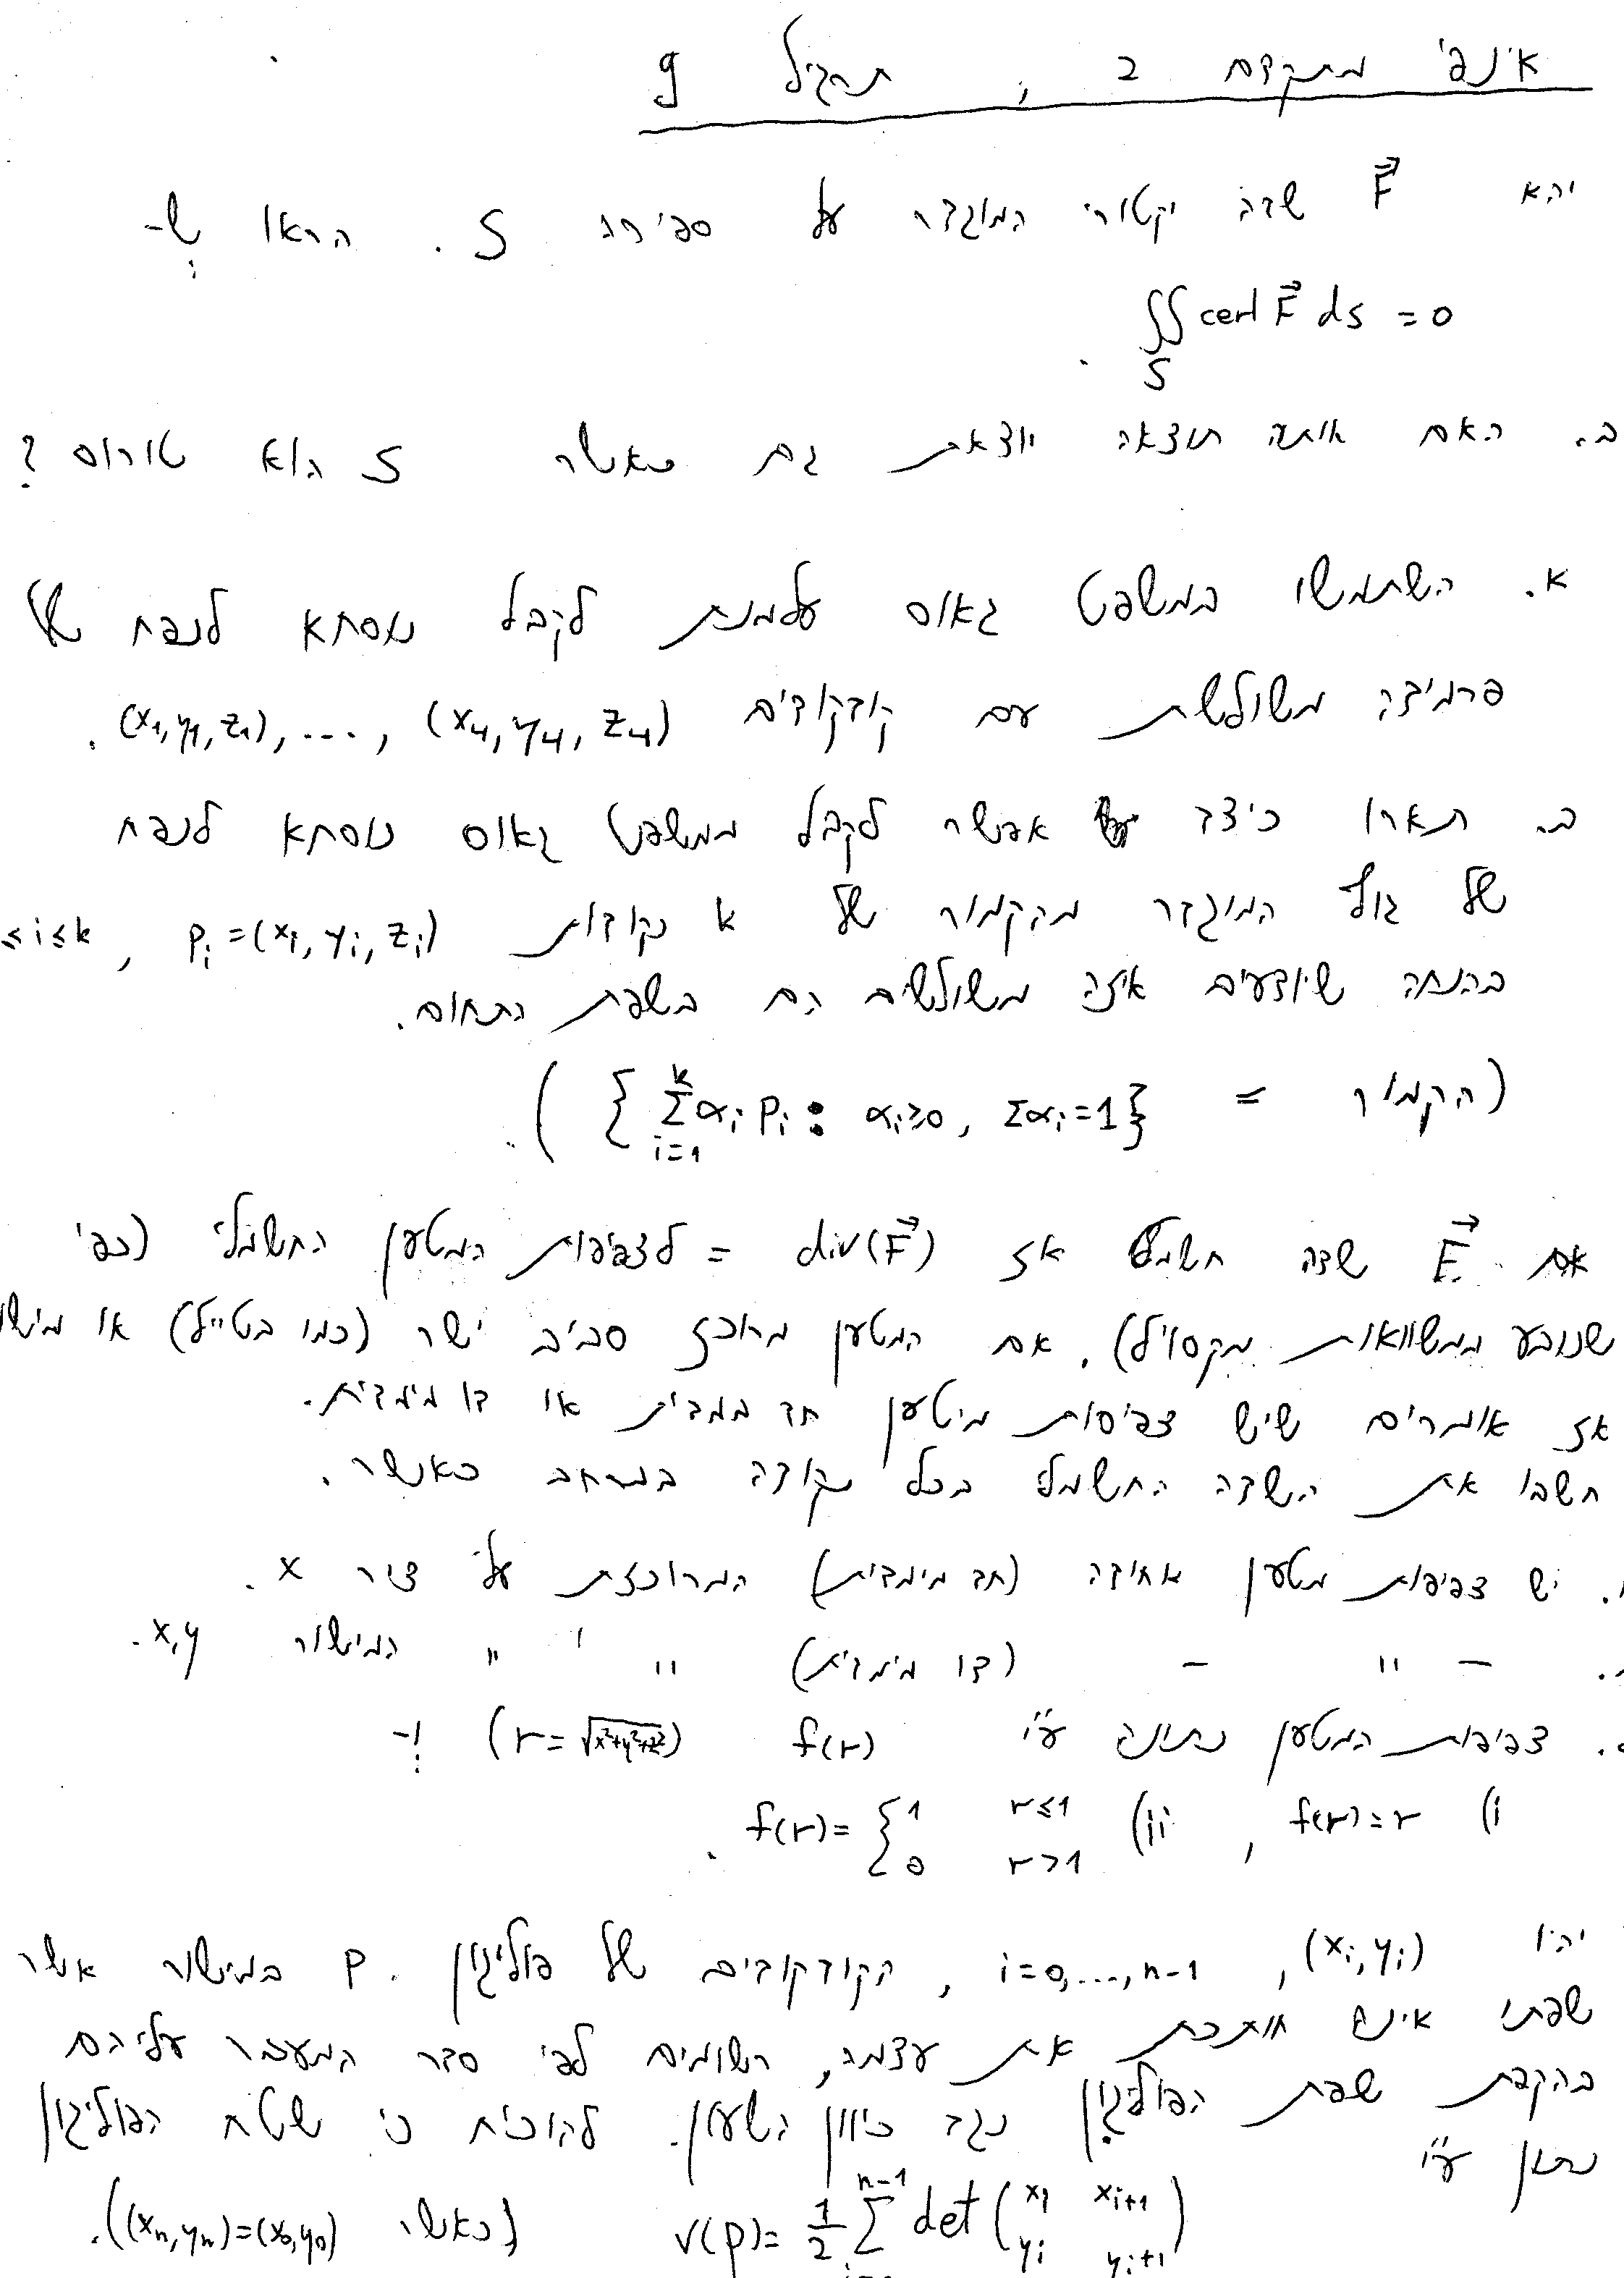 אינפי מתקדם 2 , תרגיל 9
יהא F⃗ שדה וקטורי המוגדר על ספירה S. הראו ש-
∬_S curl F⃗ ds = 0
ב. האם אותה תוצאה יוצאת גם כאשר S הוא טורוס ?
א. השתמשו במשפט גאוס על מנת לקבל נוסחא לנפח של
פרמידה משולשת עם קודקודים (x₁,y₁,z₁), ..., (x₄,y₄,z₄).
ב. תארו כיצד אפשר לקבל ממשפט גאוס נוסחא לנפח
של גוף המוגדר מהקמור של k נקודות p_i=(x_i, y_i, z_i) , ≤i≤k
בהנחה שיודעים איזה משולשים הם בשפת התחום.
(הקמור = { Σ_{i=1}^{k} α_i p_i : α_i≥0, Σα_i=1 } ).
אם E⃗ שדה חשמלי אז div(E⃗) = לצפיפות המטען החשמלי (כפי
שנובע ממשוואות מקסויל). אם המטען מרוכז סביב ישר (כמו בטייל) או מישו
אז אומרים שיש צפיפות מיטען חד ממדית או דו מימדית.
חשבו את השדה החשמלי בכל נקודה במרחב כאשר.
. יש צפיפות מטען אחידה (חד מימדית) המרוכזת על ציר x.
. – " – (דו מימדית) " " המישור x,y.
. צפיפות המטען נתונה ע"י f(r) (r=√(x²+y²+z²)) ו-
i) f(r)=r , ii) f(r)= { 1 r≤1 0 r>1 .
יהיו (x_i,y_i), i=0,...,n-1 , הקודקודים של פוליגון P במישור אשר
שפתו אינה חותכת את עצמה, רשומים לפי סדר המעבר עליהם
בהקפת שפת הפוליגון נגד כיוון השעון. להוכיח כי שטח הפוליגון
נתון ע"י
v(p)= 1/2 Σ^{n-1} det ( x_i x_{i+1} y_i y_{i+1} ) (כאשר (x_n,y_n)=(x₀,y₀)).